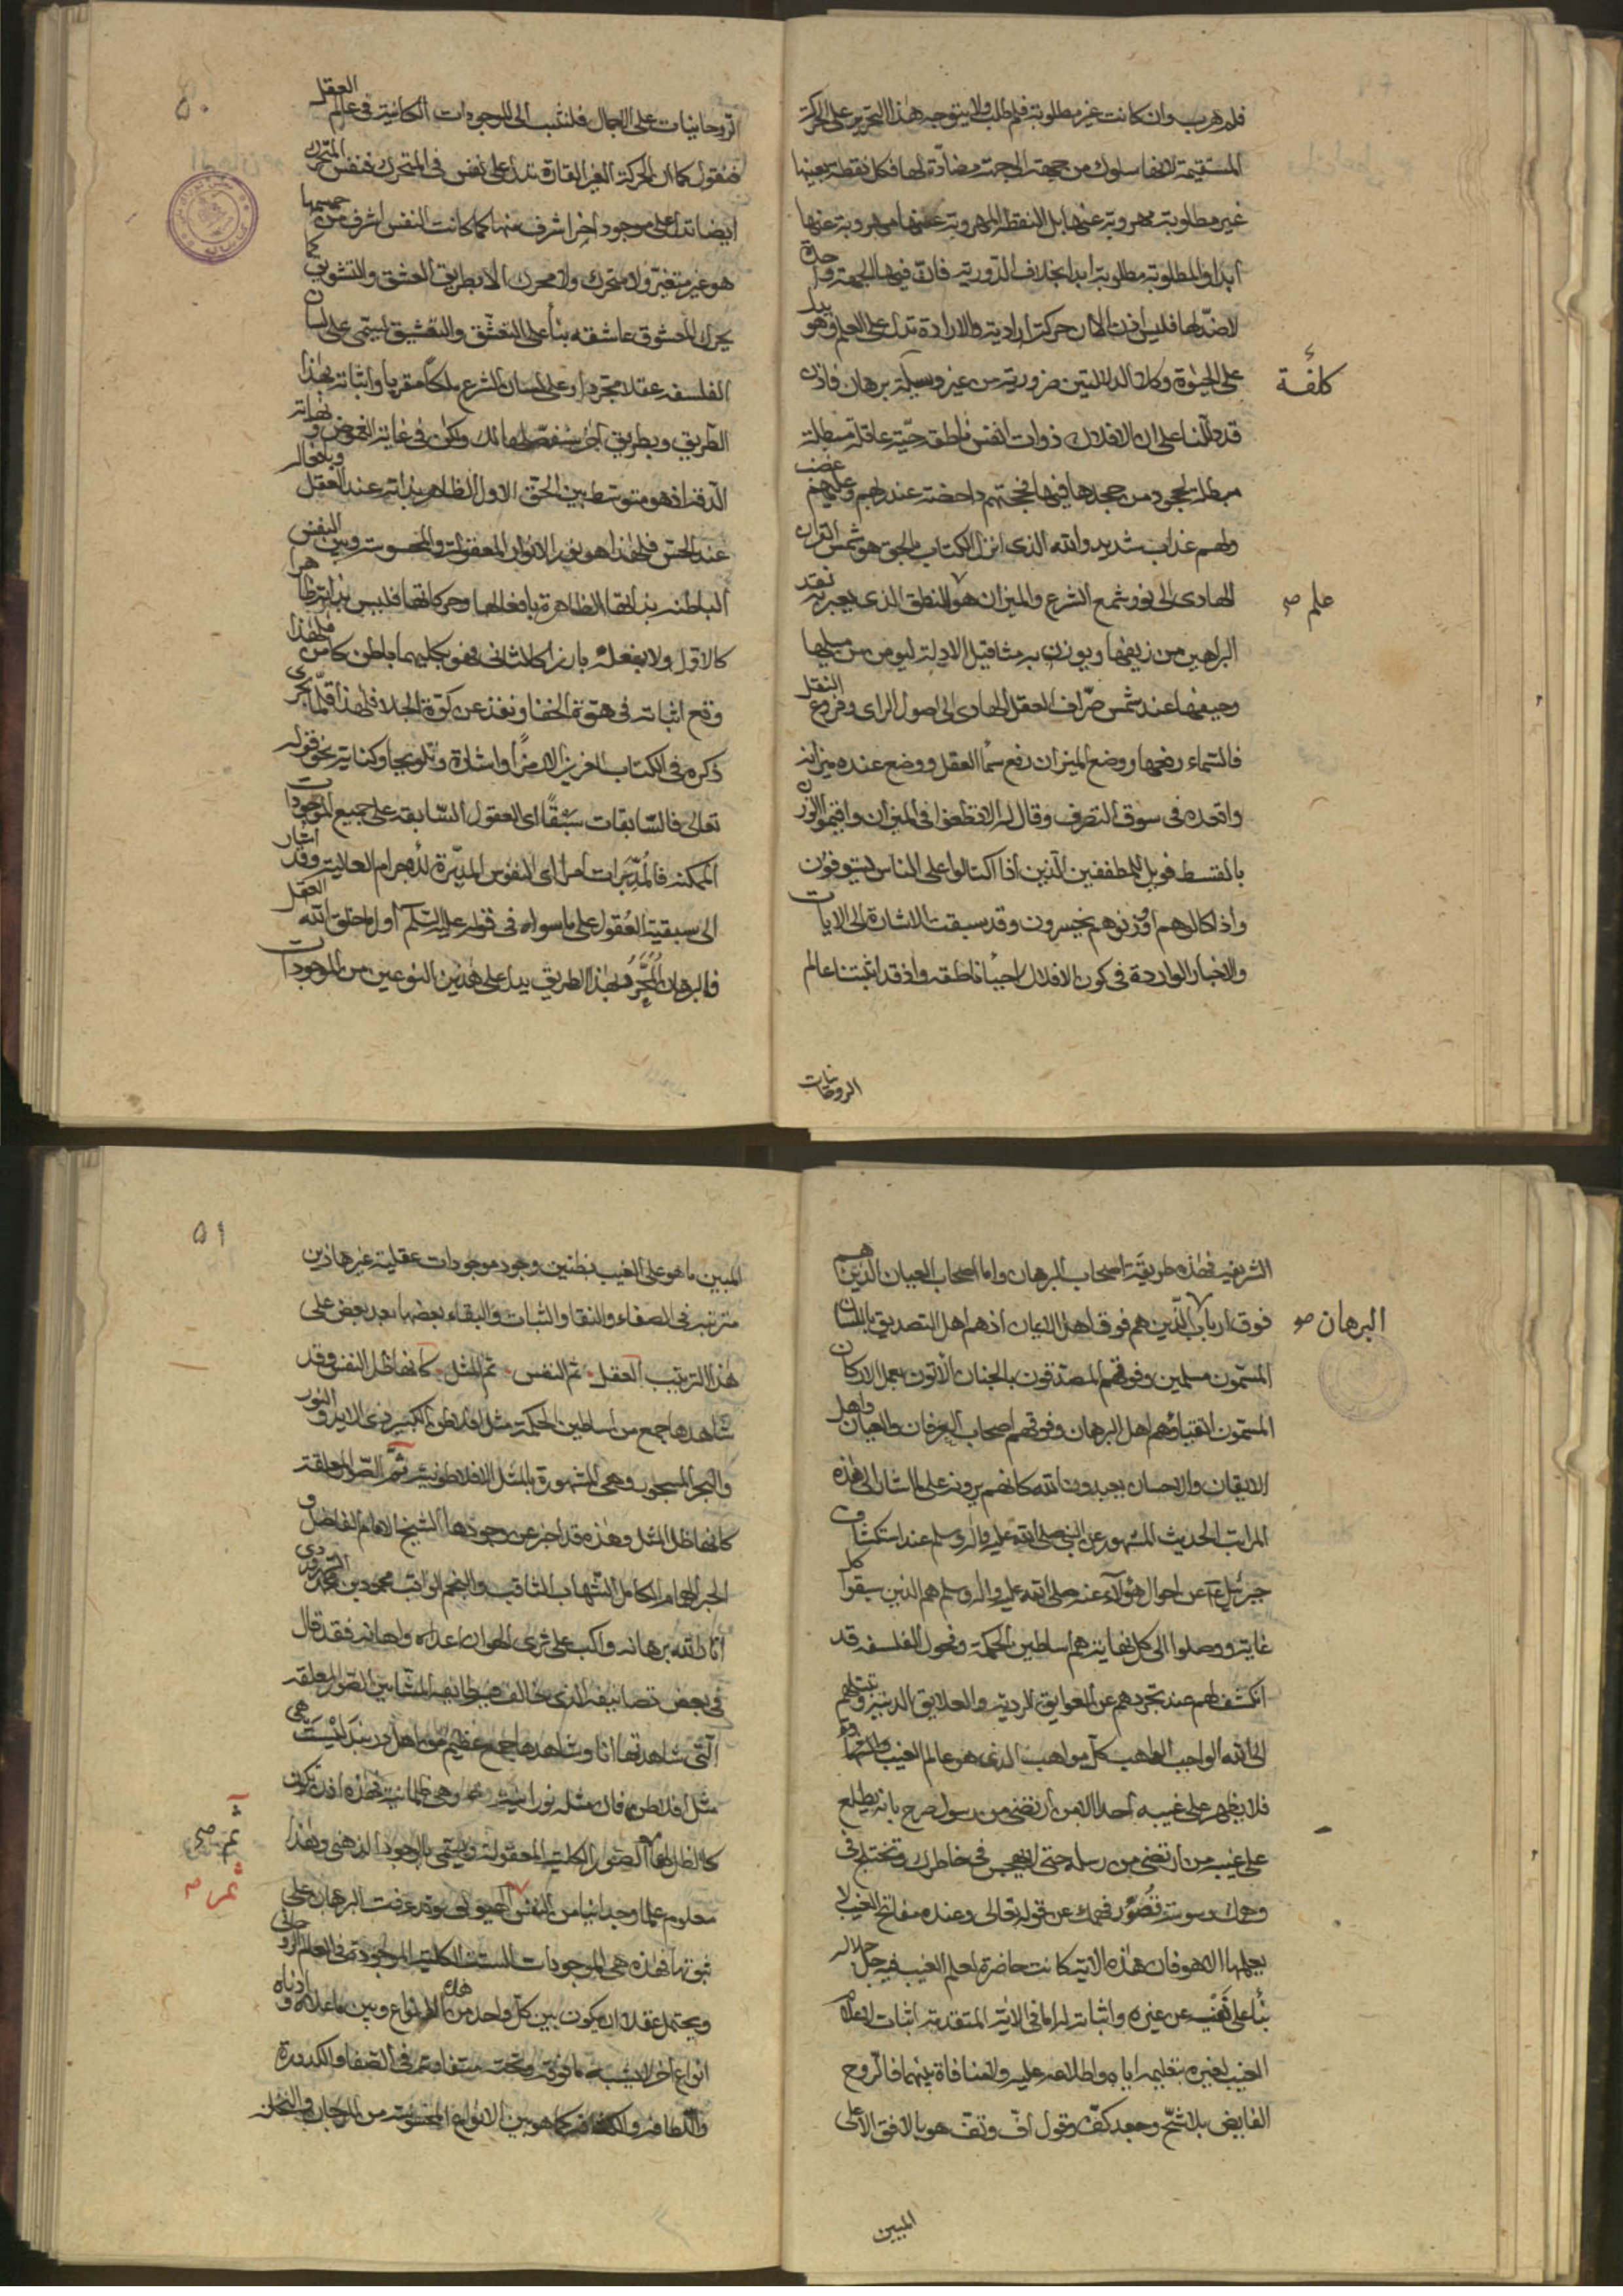 فلم هرب وان كانت غير مطلوبة فلم طلب ولا يتوجه هذا التحرير على الحركة
المستقيمة لانها سلوك من جهة الى جهة مضادة لها فكل نقطة بعينها
غير مطلوبة مهروبة عنها بل النقطة المهروبة عنها مهروبة عنها
ابدا والمطلوبة مطلوبة ابدا بخلاف الدورية فان فيها الجهة واحدة
لا ضد لها فليس اذن الا ان حركتها ارادية والارادة تدل على العلم وهو يدل
على الحيوة وكلا الدلالتين ضرورية من غير وسيلة برهان فاذن
كلفة
قد دللنا على ان الافلاك ذوات انفس ناطقة حية عاقلة مبطلة
مبطلة لجحود من جحدها فيها فحجتهم داحضة عند ربهم وعليهم غضب
ولهم عذاب شديد والله الذى انزل الكتاب بالحق هو شمس القران
الهادى الى نور شمع الشرع والميزان هو المنطق الذى يعير به نقد
علم صح
البراهين من زيفها ويوزن به مثاقيل الادلة ليومن من ميلها
وحيفها عند شمس صراف العقل الهادى الى اصول الراى وفروع النقل
فالسماء رفعها ووضع الميزان رفع سما العقل ووضع عنده ميزانه
واقعده فى سوق التصرف وقال له الا تطغوا فى الميزان واقيموا الوزن
بالقسط فويل للمطففين الذين اذا اكتالوا على الناس يستوفون
واذا كالوهم او وزنوهم يخسرون وقد سبقت الاشارة الى الايات
والاخبار الواردة فى كون الافلاك احيا ناطقة واذ قد اثبتنا عالم
الروحانيات
٥٠
الروحانيات على الاجمال فلننتسب الى الموجودات الكائنة فى عالم العقل
فنقول كما ان الحركة الغير القارة تدل على نفس فى المتحرك فنفس المتحرك
ايضا تدل على موجود اخر اشرف منها كما كانت النفس اشرف من جسمها
هو غير متغير ولا متحرك ولا محرك الا بطريق العشق والتشويق كما
يحرك المعشوق عاشقه بناء على التعشق والتعشيق ليسمى على لسان
الفلسفة عقلا مجردا وعلى لسان الشرع ملكا مقربا واثباته بهذا
الطريق وبطريق اخر سنفصلها لك ولكن فى غاية الغموض ونهاية
الدقة اذ هو متوسط بين الحق الاول الظاهر بذاته عند العقل وبافعاله
عند الحس فلهذا هو نور الانوار المعقولة والمحسوسة وبين النفس
الباطنة بذاتها الظاهرة بافعالها وحركاتها فليس بذاته ظاهرا
كالاول ولا بفعله بارزا كالثانى فهو بكليهما باطن كامن فلهذا
وقع اثباته فى هوة الخفا ونفذ عن كوة الجلا فلهذا قلما جرى
ذكره فى الكتاب العزيز الا رمزا واشارة وتلويحا وكناية نحو قوله
تعالى فالسابقات سبقا اى العقول السابقة على جميع الموجودات
الممكنة فالمدبرات امرا اى النفوس المدبرة للاجرام العالية وقد اشار
الى سبقية العقول على ما سواه فى قوله عليه السلم اول ما خلق الله العقل
فالبرهان المحرر بهذا الطريق يدل على هذين النوعين من الموجودات
الشريفة فهذه طريقة اصحاب البرهان واما اصحاب العيان الذين هم
فوق ارباب الذين هم فوق اهل الايمان اذ هم اهل التصديق باللسان
البرهان صح
المسمون مسلمين وفوقهم المصدقون بالجنان الاتون بعمل الاركان
المسمون اتقياء وهم اهل البرهان وفوقهم اصحاب العرفان والعيان واهل
الايقان والاحسان يعبدون الله كانهم يرونه على ما اشار الى هذه
المراتب الحديث المشهور عن النبى صلى الله عليه واله وسلم عند استكشاف
جبرئيل ع عن احوال هؤلاء عنه صلى الله عليه واله وسلم هم الذين سبقوا كل
غاية ووصلوا الى كل نهاية هم اساطين الحكمة وفحول الفلسفة قد
انكشف لهم عند تجردهم عن العوايق الردية والعلايق الدنية وتبتلهم
الى الله الواجب الواهب كل مواهب الذى هو عالم الغيب والشهادة
فلا يظهر على غيبه احدا الا من ارتضى من رسول صرح بانه يطلع
على غيبه من ارتضى من رسله حتى لا يهجس فى خاطرك ويختلج فى
وهمك وسوسة تصور فهمك عن قوله تعالى وعنده مفاتح الغيب لا
يعلمها الا هو فان هذه الاية كانت حاصرة لعلم الغيب فيه جل جلاله
بناء على نفيه عن غيره واثباته له اما فى الاية المتقدمة اثبات لاعلام
الغيب لغيره بتعليمه اياه واطلاعه عليه ولا منافاة بينهما فالروح
الفايض بلا شح وجعد كف وقول اف وتف هو بالافق الاعلى
المبين
٥١
المبين ما هو على الغيب بظنين وجود موجودات عقلية غير هاذين
مترتبة فى الصفاء والنقا والثبات والبقاء بعضها بعد بعض على
هذا الترتيب العقل ثم النفس ثم المثل كانها ظل النفس وقد
شاهدها جمع من اساطين الحكمة مثل افلاطن الكبير ذى الايد والنور
والبحر المسجور وهى المشهورة بالمثل الافلاطونية ثم الصور المعلقة
كانها ظل المثل وهذه قد اخبر عن وجودها الشيخ الامام الفاضل و
الحبر الهمام الكامل الشهاب الثاقب والنجم الواقب محمود بن محمد السهروردى
انار الله برهانه واكب على ثرى الهوان اعداه واهانه فقد قال
فى بعض تصانيفه الذى خالف فيه طايفة المشائين الصور المعلقة
التى شاهدتها انا وشاهدها جمع عظيم من اهل دربند ليست هى
مثل افلاطن فان مثله نورانية وهى ظلمانية فهذه اذن تكون
كالظل لها ثم الصور الكلية المعقولة ويسمى بالوجود الذهنى وهذا
ثم صح
ثم صح
معلوم علما وجدانيا من النفس الحيوانى وقد عرفت البرهان على
ثبوتها فهذه هى الموجودات الستة الكلية الموجودة فى العالم الروحانى
ويحتمل عقلا ان يكون بين كل واحد من هذه الانواع وبين ما علاه وادناه
انواع اخر لا نسبة ما فوقه وتحته متفاوتة فى الصفا والكدورة
واللطافة والكثافة كما هو بين الانواع المحسوسة من المرجان والنخلة